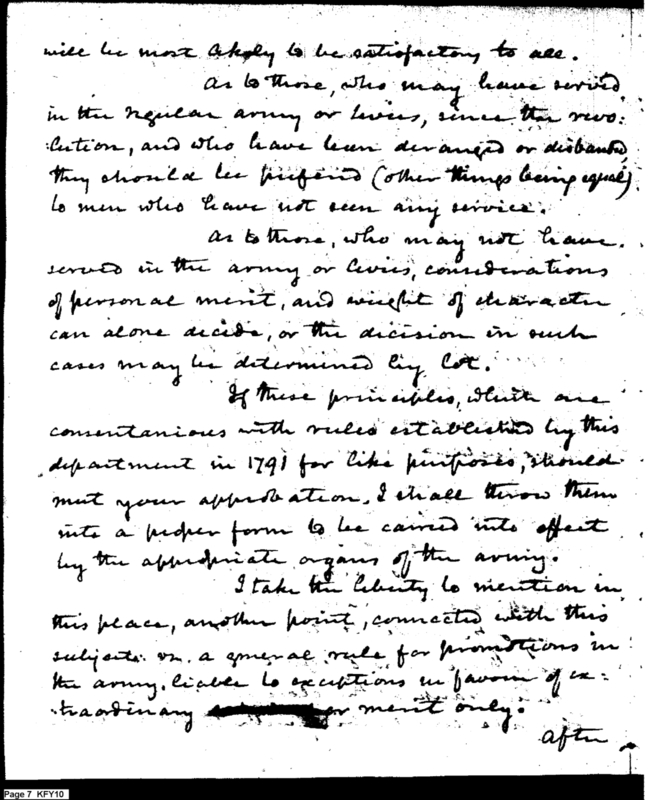 will be most likely to be satisfactory to all.
As to those, who may have served
in the regular army or levies, since the revo:
:lution, and who have been deranged or disbanded
they should be prefered (other things being equal)
to men who have not seen any service.
As to those, who may not have
served in the army or levies, considerations
of personal merit, and weight of character
can alone decide, or the decision in such
cases may be determined by lot.
If these principles, which are
consentanious with rules established by this
department in 1791 for like purposes, should
meet your approbation, I shall throw them
into a proper form to be carried into effect
by the appropriate organs of the army.
I take the liberty to mention in
this place, another point, connected with this
subject. viz. a general rule for promotions in
the army. liable to exceptions in favour of ex:
:traordinary or merit only.
After
Page 7 KFY10